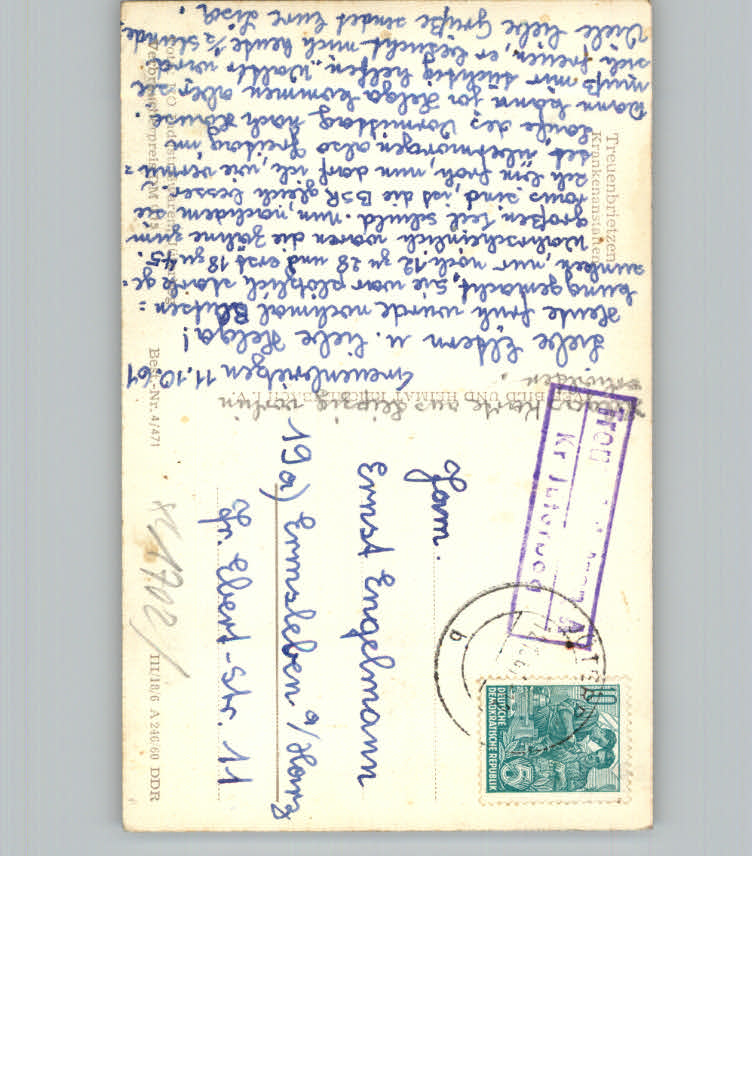 Treuenbrietzen 11.10.61
Liebe Eltern u. liebe Helga!
Heute früh wurde nochmal Blutsen=
kung gemacht, sie war plötzlich stark ge=
sunken, nur noch 12 zu 28 und erst 18 zu 45.
Wahrscheinlich waren die Zähne zum
großen Teil schuld. Nun, nachdem sie
raus sind, ist die BSR gleich besser.
Ich bin froh, nun darf ich, wie vermu=
tet, übermorgen also Freitag im
Laufe des Vormittag nach Hause.
Dann kann ja Helga kommen aber sie
muß mir tüchtig helfen. Walter wird
sich freuen, er besucht mich heute ½ Stunde.
Viele liebe Grüße sendet Eure Lisa.
Karte aus Leipzig vorhin
Treuenbrietzen
Krankenanstalten
BILD UND HEIMAT REICHENBACH I. V.
Best.-Nr. 4/471
III/18/6 A 240/60 DDR
Kr Jüterbog
b
10
DEUTSCHE
DEMOKRATISCHE REPUBLIK
Fam.
Ernst Engelmann
19a) Ermsleben a/Harz
Fr. Ebert-Str. 11